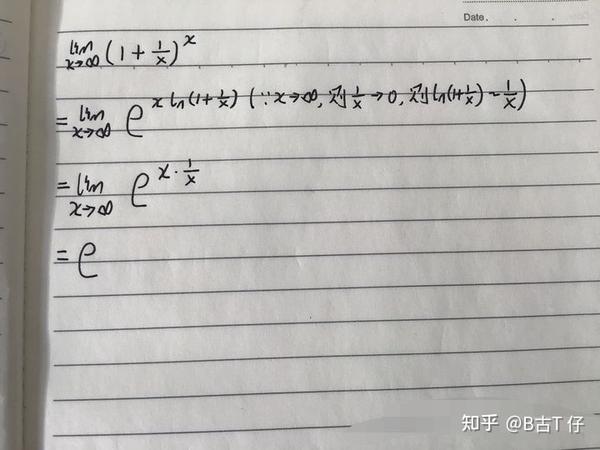 Date.
lim x→∞ (1+1/x)^x
= lim x→∞ e^(x ln(1+1/x)) (∵x→∞, 则1/x→0, 则ln(1+1/x)~1/x)
= lim x→∞ e^(x·1/x)
= e
知乎 @B古T 仔